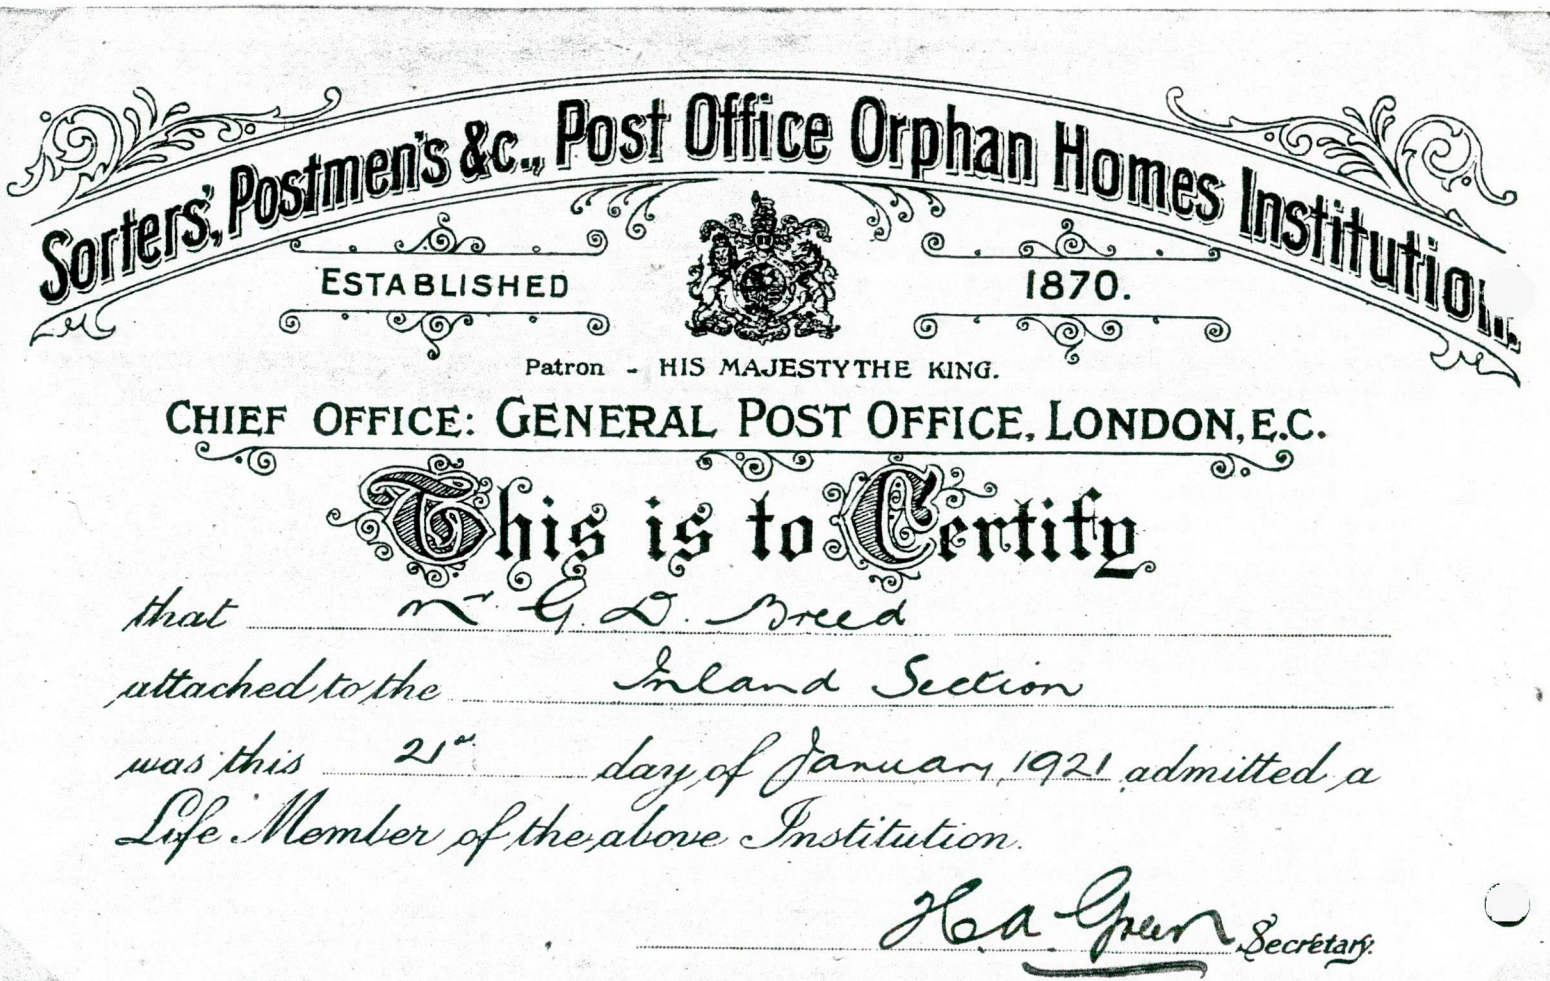 Sorters', Postmen's &c., Post Office Orphan Homes Institution.
ESTABLISHED 1870.
Patron - HIS MAJESTY THE KING.
CHIEF OFFICE: GENERAL POST OFFICE, LONDON, E.C.
This is to Certify
that Mr. G. D. Breed
attached to the Inland Section
was this 21st day of January 1921 admitted a
Life Member of the above Institution.
H. A. Green Secretary.